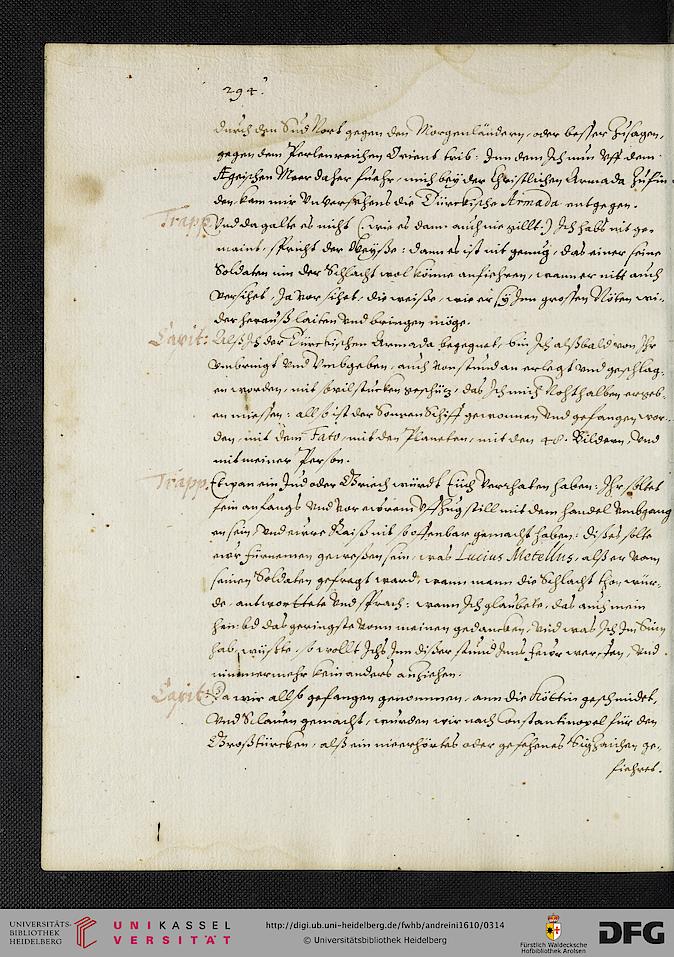 294.
durch den Sud Port gegen den Morgenländern, oder besser Zusagen,
gegen dem Perlenreichen Orient trib: Inn dem Ich nun vff dem
Ægeischen Meer daher fuehr, mich bey der Christlichen Armada Zufin
den, kam mir vnversehens die Türckische Armada entgegen.
Trapp: Vnd da galte es nicht (wie es dann auch nie gillt.) Ich habs nit ge-
maint, spricht der Weyße: dann es ist nit genug, das einer seine
Soldaten inn der Schlacht wol könne anfiehren, wann er nitt auch
versihet, Ja vor sihet, die weiße, wie er sy Inn grossen Nöten wi-
der herauß laiten vnd bringen möge.
Capit: Alß Ich der Türckischen Armada begegnet, bin Ich alßbald von Ihr
vmbringt vnd vmbgeben, auch von stund an erlegt vnd geschlag-
en worden, mit so vil stucken geschütz, das Ich mich Nohthalben ergeb-
en miessen: allso ist der Sonnen Schiff gewonnen vnd gefangen wor-
den, mit dem Fato, mit den Planeten, mit den 48. Bildern, vnd
mit meiner Person.
Trapp: Etwan ein Jud oder Griech würdt Euch verrhaten haben: Ihr soltet
fein anfangs vnd vor ewrem Vffzug still mit dem handel vmbgang
en sein, vnd ewre Raiß nit so offenbar gemacht haben: dißes solte
ewr fürnemen geweßen sein, was Lucius Metellus, alß er vom
seinen Soldaten gefragt ward, wann mann die Schlacht thon wür-
de, antworttete vnd sprach: wann Ich glaubete, das auch mein
hembd das geringste vonn meinen gedancken, vnd was Ich Im Sinn
hab, wüßte, so wollt Ichs Inn dißer stund Ins fewr werffen, vnd
nimmermehr kein anders anziehen.
Capit: Da wir allso gefangen genommen, ann die Köttin geschmidet,
vnd Sclauen gemacht, wurden wir nach Constantinopel für den
Großtürcken, alß ein nie erhörtes oder gesehenes Sigzaichen ge-
fiehret.
UNIVERSITÄTS-
BIBLIOTHEK
HEIDELBERG
UNIKASSEL
VERSITÄT
http://digi.ub.uni-heidelberg.de/fwhb/andreini1610/0314
© Universitätsbibliothek Heidelberg
Fürstlich Waldecksche
Hofbibliothek Arolsen
DFG